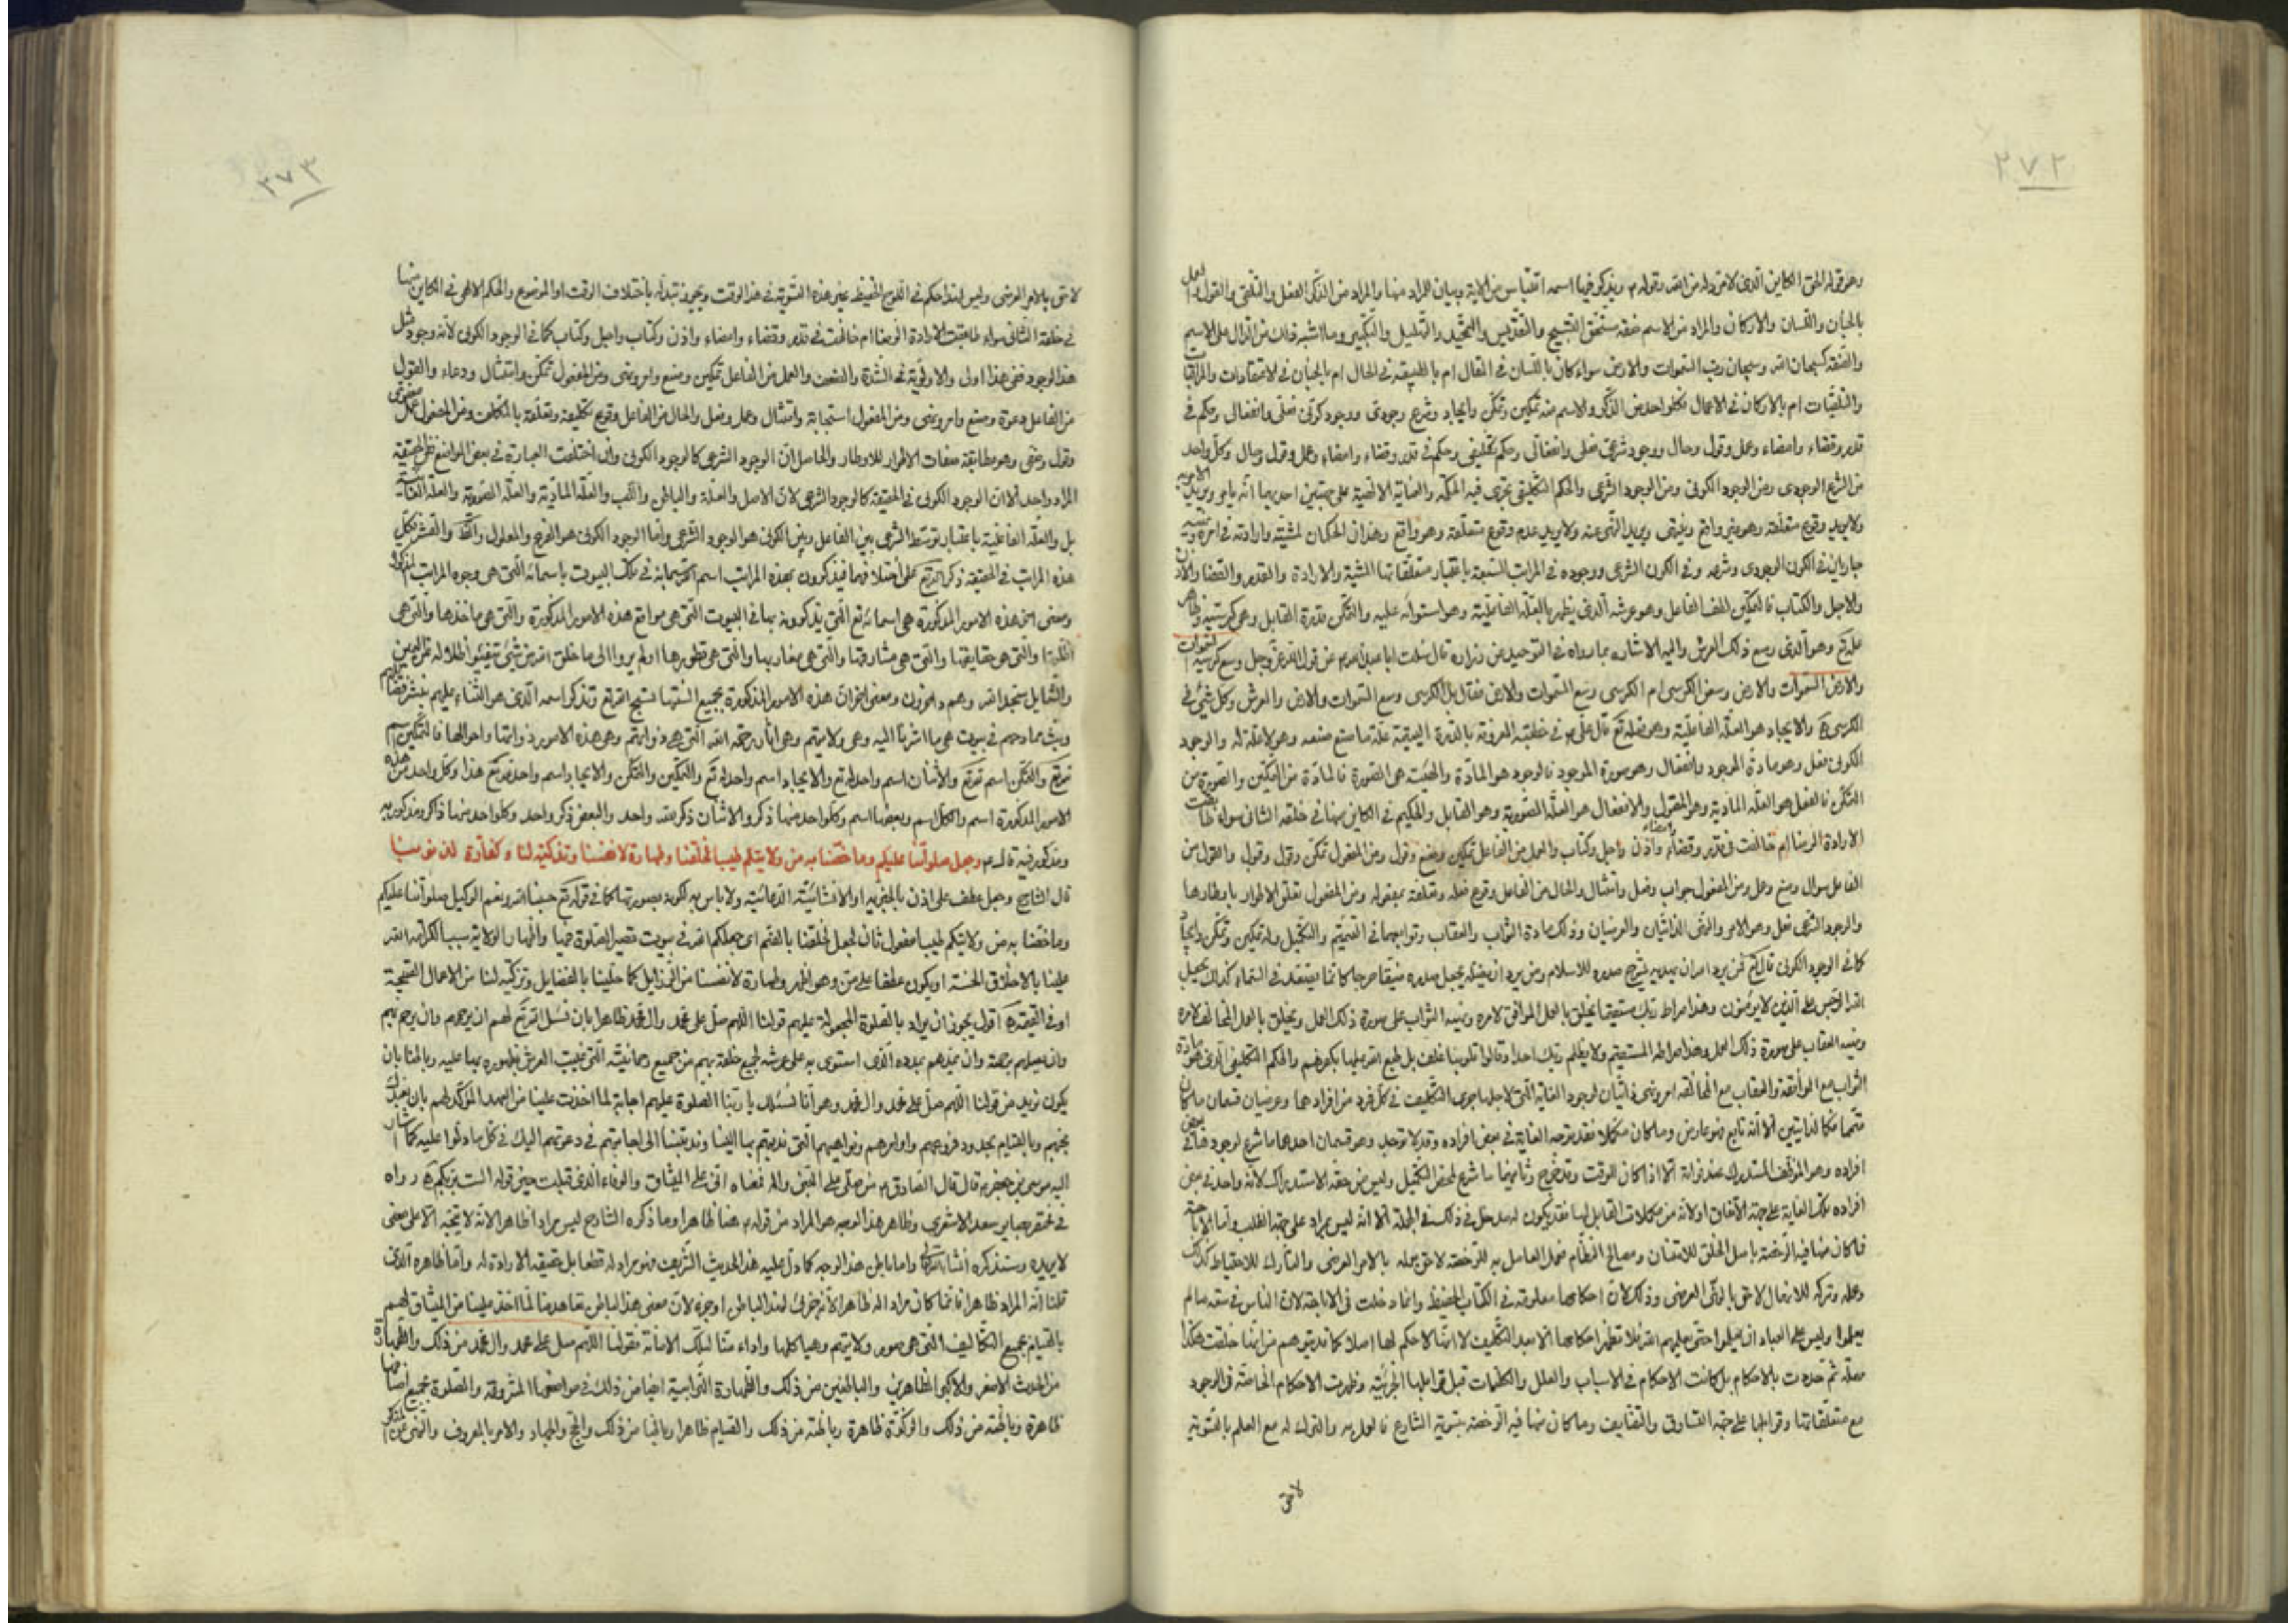 ٢٧٢
وهو قوله الحق الكاين الذى لامر وله من الله وقوله ويذكر فيها اسمه اقتباس من الاية وبيان المراد منها والمراد من الذكر الفعل والتلقى والقول
بالجنان واللسان والاركان والمراد من الاسم صفة مستحق التسبيح والتقديس والتحميد والتهليل والتكبير وما اشبه ذلك من الدال على الاسم
والصفة كسبحان الله وسبحان رب السموات والارض سواء كان باللسان فى المقال ام بالطبيعة فى الحال ام بالجنان فى الاعتقادات والمراقبات
والتلقيات ام بالاركان فى الاعمال فكل واحد من الذكر والاسم منه تمكين وتمكن وايجاد وشرع وجودى ووجود كونى فعلى وانفعالى وحكم فى
قدر وقضاء وامضاء وعمل وقول وحال ووجود شرعى فعلى وانفعالى وحكم تكليفى وحكم فى قدر وقضاء وامضاء وعمل وقول وحال وكل واحد
من الشرع الوجودى ومن الوجود الكونى ومن الوجود الشرعى والحكم التكليفى يجرى فيه الحكم والعناية الالهية على جهتين احديهما انه يامر ويريد
ولا يريد وقوع متعلقه وهو غير واقع وينهى ويريد النهى عنه ولا يريد عدم وقوع متعلقه وهو واقع وهذان الحكمان لمشيته وارادته فى امره ونهيه
جاريان فى الكون الوجودى وشرعه وفى الكون الشرعى ووجوده فى المراتب السبعة باعتبار متعلقاتها المشية والارادة والقدر والقضا والاذن
والاجل والكتاب فالتمكين الطف الفاعل وهو عرشه الذى يظهر بالعلة الفاعلية وهو استوائه عليه والتمكن قدرة القابل وهى كرسيه وظاهر
علمه وهو الذى وسع ذلك العرش واليه الاشاره بما رواه فى التوحيد عن زراره قال سئلت ابا عبد الله عن قول الله عز وجل وسع كرسيه السموات
والارض السموات والارض وسعن الكرسى ام الكرسى وسع السموات والارض فقال بل الكرسى وسع السموات والارض والعرش وكل شئ فى
الكرسى والايجاد هو العلة الفاعلية وهو فعله تع قال على ع فى خطبته المعروفة بالدرة اليتيمة علة ما صنع صنعه وهو لا علة له والوجود
الكونى فعل وهو مادة الموجود وانفعال وهو صورة الموجود فالوجود هو المادة والمهية هى الصورة فالمادة من التمكين والصورة من
التمكن فالفعل هو العلة المادية وهو المقبول والانفعال هو العلة الصورية وهو القابل والحكم فى الكاين منها فى خلقه الثانى سواء طابقت
الارادة الرضا ام خالفت فى قدر وقضاء وامضاء واذن واجل وكتاب والعمل من الفاعل تمكين وصنع وقول ومن المفعول تمكن وقول وقول والقول من
الفاعل سوال وصنع وعمل ومن المفعول جواب وفعل وامتثال والحال من الفاعل وقوع فعله وتعلقه بمفعوله ومن المفعول تعلق الاطوار باوطارها
والوجود الشرعى فعل وهو الامر والنهى الذاتيان والعرضيان وذلك مادة الثواب والعقاب وتوابعهما فى التتميم والتكميل وله تمكين وتمكن وايجاد
كما فى الوجود الكونى قال تع فمن يرد الله ان يهديه يشرح صدره للاسلام ومن يرد ان يضله يجعل صدره ضيقا حرجا كانما يصعد فى السماء كذلك يجعل
الله الرجس على الذين لا يؤمنون وهذا صراط ربك مستقيما يخلق بالعمل الموافق لامره ونهيه الثواب على صورة ذلك العمل ويخلق بالعمل المخالف لامره
ونهيه العقاب على صورة ذلك العمل وهذا صراط المستقيم ولا يظلم ربك احدا وقالوا قلوبنا غلف بل طبع الله عليها بكفرهم والحكم التكليفى الذى هو مادة
الثواب مع الموافقة والعقاب مع المخالفة امر ونهى ذاتيان لوجود الغاية التى لاجلها جرى التكليف فى كل فرد من افرادهما وعرضيان قسمان ما كان
متمما فكالذاتيين الا انه تابع فهو عارض وما كان مكملا فقد توجد الغاية فى بعض افراده وقد لا توجد وهو قسمان احدهما ما شرع لوجودها فى بعض
افراده وهو الموظف المستدرك عند فواته الا اذا كان للوقت وقد خرج وثانيهما ما شرع لمحض التكميل وليس من حقه الاستدراك لانه واحد فى بعض
افراده تلك الغاية على جهة الاتفاق او لانه من مكملات القابل لها فقد يكون له مدخل فى ذلك فى الجملة الا انه ليس بمراد على جهة الطلب واما الاباحة
فما كان منها فيه الرخصة باصل الخلق للامتنان ومصالح النظام فعمل العامل به للرخصة لاحق بعمله بالامر العرضى والتارك للاحتياط كذلك
وعمله وتركه للارتفاع لاحق بالنهى العرضى وذلك لان احكامها معلومة فى الكتاب الحفيظ وانما دخلت فى الاباحة لان الناس فى سعة ما لم
يعلموا وليس على العباد ان يعلموا حتى يعلمهم الله فلا تظهر احكامها الا بعد التكليف لا انها لا حكم لها اصلا كما قد يتوهم من انها خلقت هكذا
معطلة ثم حددت بالاحكام بل كانت الاحكام فى الاسباب والعلل والكليات قبل قوابلها الجزئية وظهرت الاحكام الخاصة فى الوجود
مع متعلقاتها وقوابلها على جهة التساوق والتضايف وما كان منها فيه الرخصة بتسوية الشارع فالعمل به والترك له مع العلم بالتسوية
لاحق
٢٧٣
لاحق بالامر العرضى وليس لهذا حكم فى اللوح الحفيظ غير هذه التسوية فى هذا الوقت ويجوز تبدله باختلاف الوقت او الموضوع والحكم الالهى فى الكاين منها
فى خلقه الثانى سواء طابقت الارادة الرضا ام خالفت فى قدر وقضاء وامضاء واذن وكتاب واجل وكتاب كما فى الوجود الكونى لانه وجود مثل
هذا الوجود فهى هذا اولى والاولوية فى الشدة والضعف والعمل من الفاعل تمكين وصنع وامر ونهى ومن المفعول تمكن وامتثال ودعاء والقول
من الفاعل دعوة وصنع وامر ونهى ومن المفعول استجابة وامتثال وعمل وفعل والحال من الفاعل وقوع تكليفه وتعلقه بالمكلف ومن المفعول عمل
وقول وهو مطابقة صفات الاطوار للاوطار والحاصل ان الوجود الشرعى كالوجود الكونى وان اختلفت العبارة فى بعض المواضع
المراد واحد الا ان الوجود الكونى فى الحقيقة كالوجود الشرعى لان الاصل والعلة والباطن واللب والعلة المادية والعلة الصورية والعلة الغائية
بل والعلة الفاعلية باعتبار توسط الشرعى بين الفاعل وبين الكونى هو الوجود الشرعى وانما الوجود الكونى هو الفرع والمعلول والظاهر والقشر فكل
هذه المراتب فى الحقيقة ذكر الله تع على اختلافها فيذكرون بهذه المراتب اسم الله سبحانه فى تلك البيوت باسمائه التى هى وجوه المراتب المذكورة
ومعنى اخر هذه الامور المذكورة هى اسمائه تع التى يذكرونه بها فى البيوت التى هى مواقع هذه الامور المذكورة والتى هى ماخذها والتى هى
اظلتها والتى هى حقايقها والتى هى مشارقها والتى هى مغاربها والتى هى تطورها اولم يروا الى ما خلق الله من شئ يتفيئوا ظلاله عن اليمين
والشمايل سجدا لله وهم داخرون ومعنى اخر ان هذه الامور المذكورة بجميع السنتها تسبح الله تع وتذكر اسمه الذى هو الثناء عليهم بنشر فضائلهم
وبث ممادحهم فى بيوت هى ما اشرنا اليه وهى ولايتهم وهى اثار رحمة الله التى هى ذواتهم وهى هذه الامور ذواتها واحوالها فالتمكين اسم
تمكن والتمكن اسم تمكن والاثنان اسم واحد له تع والايجاد اسم واحد له تع والتمكين والتمكن والايجاد اسم واحد له تع هذا وكل واحد من هذه
الامور المذكورة اسم والكل اسم وبعضها اسم وكل واحد منها ذكر والاثنان ذكر منه واحد والبعض ذكر واحد وكل واحد منها ذاكر ومذكور به
ومذكور فيه قال ع وجعل صلواتنا عليكم وما خصنا به من ولايتكم طيبا لخلقنا وطهارة لانفسنا وتزكية لنا وكفارة لذنوبنا
قال الشارح وجعل عطف على اذن بالخبرية او الانشائية الدعائية ولا باس به لكونه بصورتها كما فى قوله تع حسبنا الله ونعم الوكيل صلواتنا عليكم
وما خصنا به من ولايتكم طيبا مفعول ثان لجعل لخلقنا بالضم اى جعلكم الله فى بيوت تصير الصلوة فيها واظهار الولاية سببا لكرامة الله
علينا بالاخلاق الحسنة او يكون عطفا على من وهو اظهر وطهارة لانفسنا من الرذايل كما حلينا بالفضايل وتزكية لنا من الاعمال القبيحة
او فى القيمة اقول يجوز ان يراد بالصلوة المجعولة عليهم قولنا اللهم صل على محمد وال محمد ظاهرا بان نسئل الله تع لهم ان يرحمهم وان يرحم بهم
وان يصلهم برحمته وان يمدهم بمدده الذى استوى به على عرشه لجميع خلقه بهم من جميع رحمانيته التى غيبت العرش بظهوره بها عليه وباطنا بان
يكون نريد من قولنا اللهم صل على محمد وال محمد وهو انا نسئلك يا ربنا الصلوة عليهم اجابة لما اخذت علينا من العهد المؤكد لهم بان نعبدك
بحبهم وبالقيام بحدود فروعهم واوامرهم ونواهيهم التى ندبتهم بها الينا وندبتنا الى اجابتهم فى دعوتهم اليك فى كل ما دلوا عليه كما اشار
اليه موسى بن جعفر ع قال قال الصادق ع من صلى على النبى واله فمعناه انى على الميثاق والوفاء الذى قبلت حين قوله الست بربكم رواه
فى مختصر بصاير سعد الاشعرى وظاهر هذا الوجه هو المراد من قوله ع هنا ظاهرا وما ذكره الشارح ليس مرادا ظاهرا لانه لا يتجه الا على معنى
لا يريده وستذكره انشاء الله تعالى واما باطن هذا الوجه كما دل عليه هذا الحديث الشريف فهو مراد له قطعا بل حقيقة الارادة له واما ظاهره الذى
قلنا انه المراد ظاهرا فانما كان مرادا له ظاهرا لانه جزئى لهذا الباطن او جزء لان معنى هذا الباطن تعاهدنا لما اخذ علينا من الميثاق لهم
بالقيام بجميع التكاليف التى هى صور ولايتهم وهياكلها واداء منا لتلك الامانة فقولنا اللهم صل على محمد وال محمد من ذلك والطهارة
من الحدث الاصغر والاكبر الظاهرين والباطنين من ذلك والطهارة الترابية ايضا من ذلك فى مواضعها المشروطة والصلوة بجميع اصنافها
ظاهرة وباطنة من ذلك والزكوة ظاهرة وباطنة من ذلك والصيام ظاهرا وباطنا من ذلك والحج والجهاد والامر بالمعروف والنهى عن المنكر